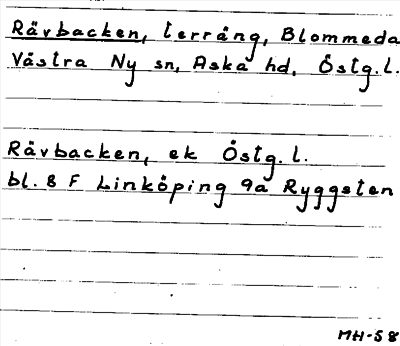 Rävbacken, terräng, Blommeda
Västra Ny sn, Aska hd, Östg.l.
Rävbacken, ek Östg.l.
bl. 8 F Linköping 9a Ryggsten
MH-58